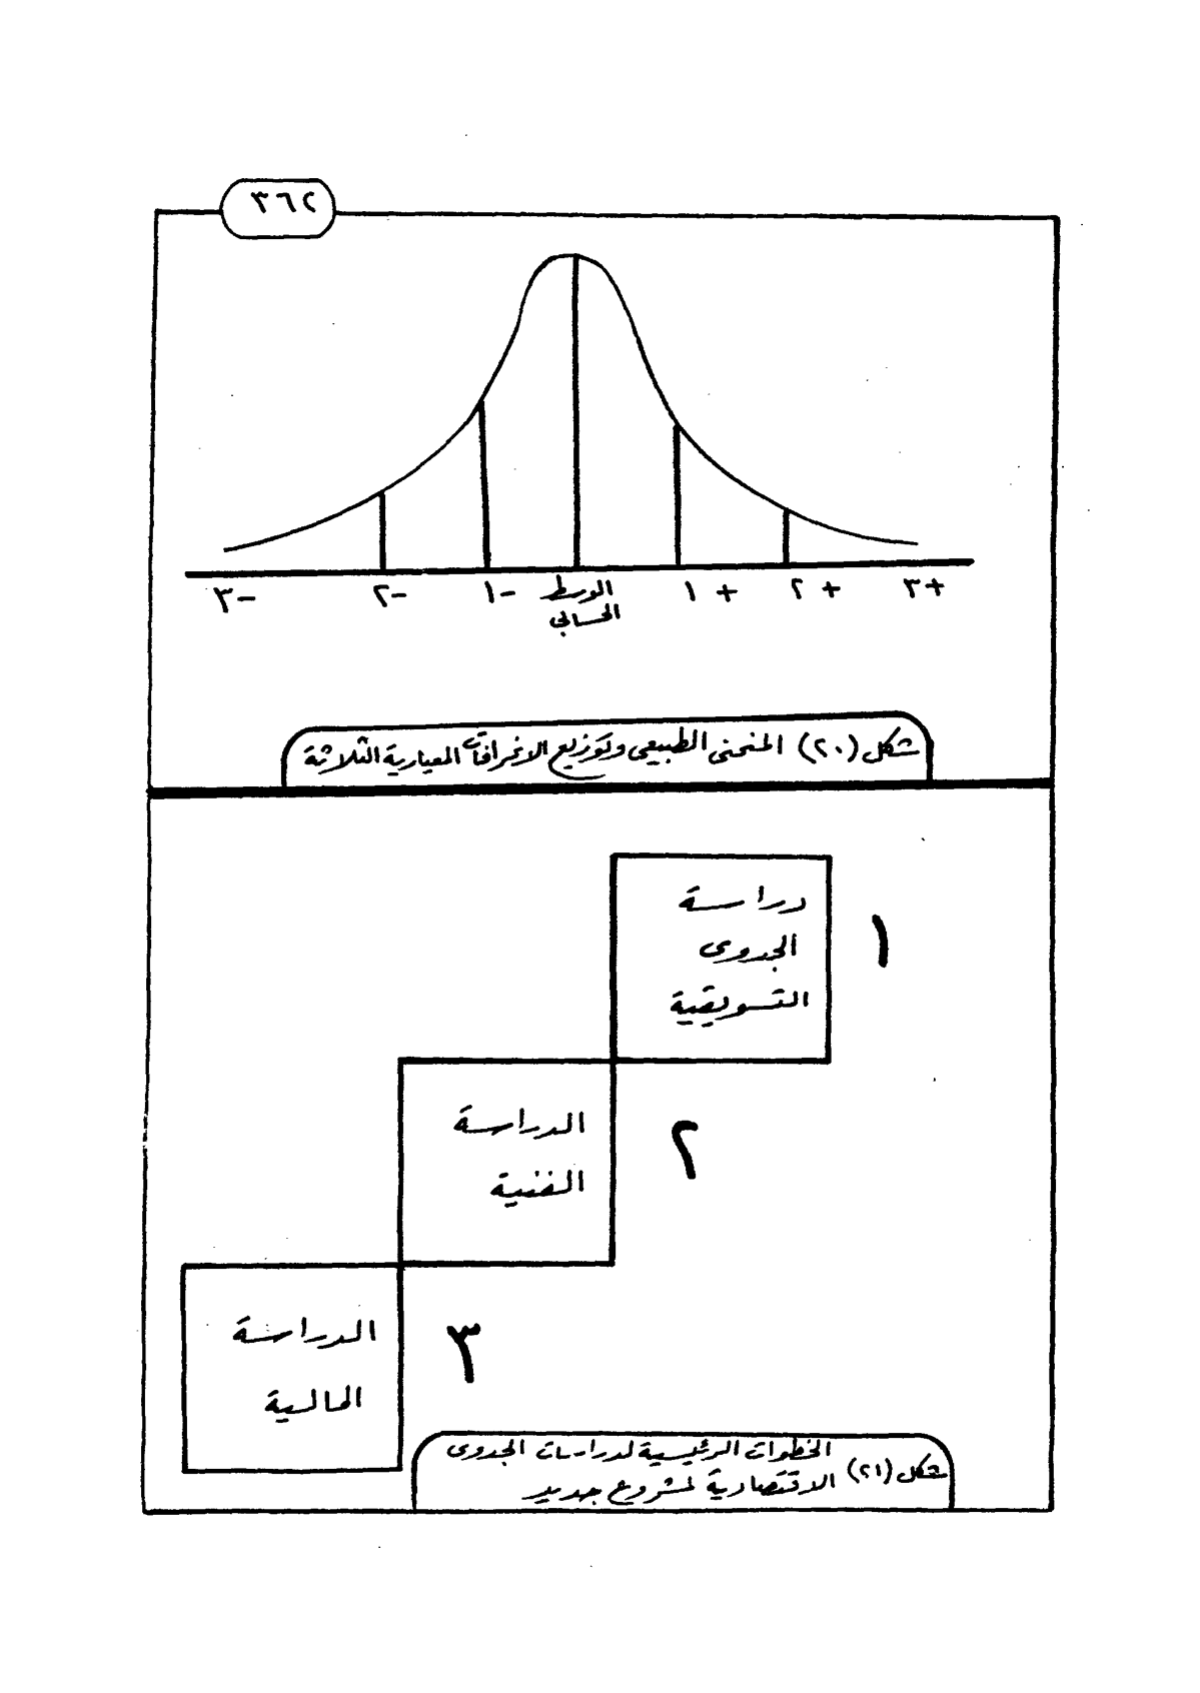 ٣٦٢
٣- ٢- ١- الوسط ١ + ٢ + ٣+
الحسابي
شكل (٢٠) المنحنى الطبيعي وتوزيع الانحرافات المعيارية الثلاثة
دراسة
الجدوى
التسويقية
١
الدراسة
الفنية
٢
الدراسة
المالية
٣
الخطوات الرئيسية لدراسات الجدوى
شكل (٢١) الاقتصادية لمشروع جديد